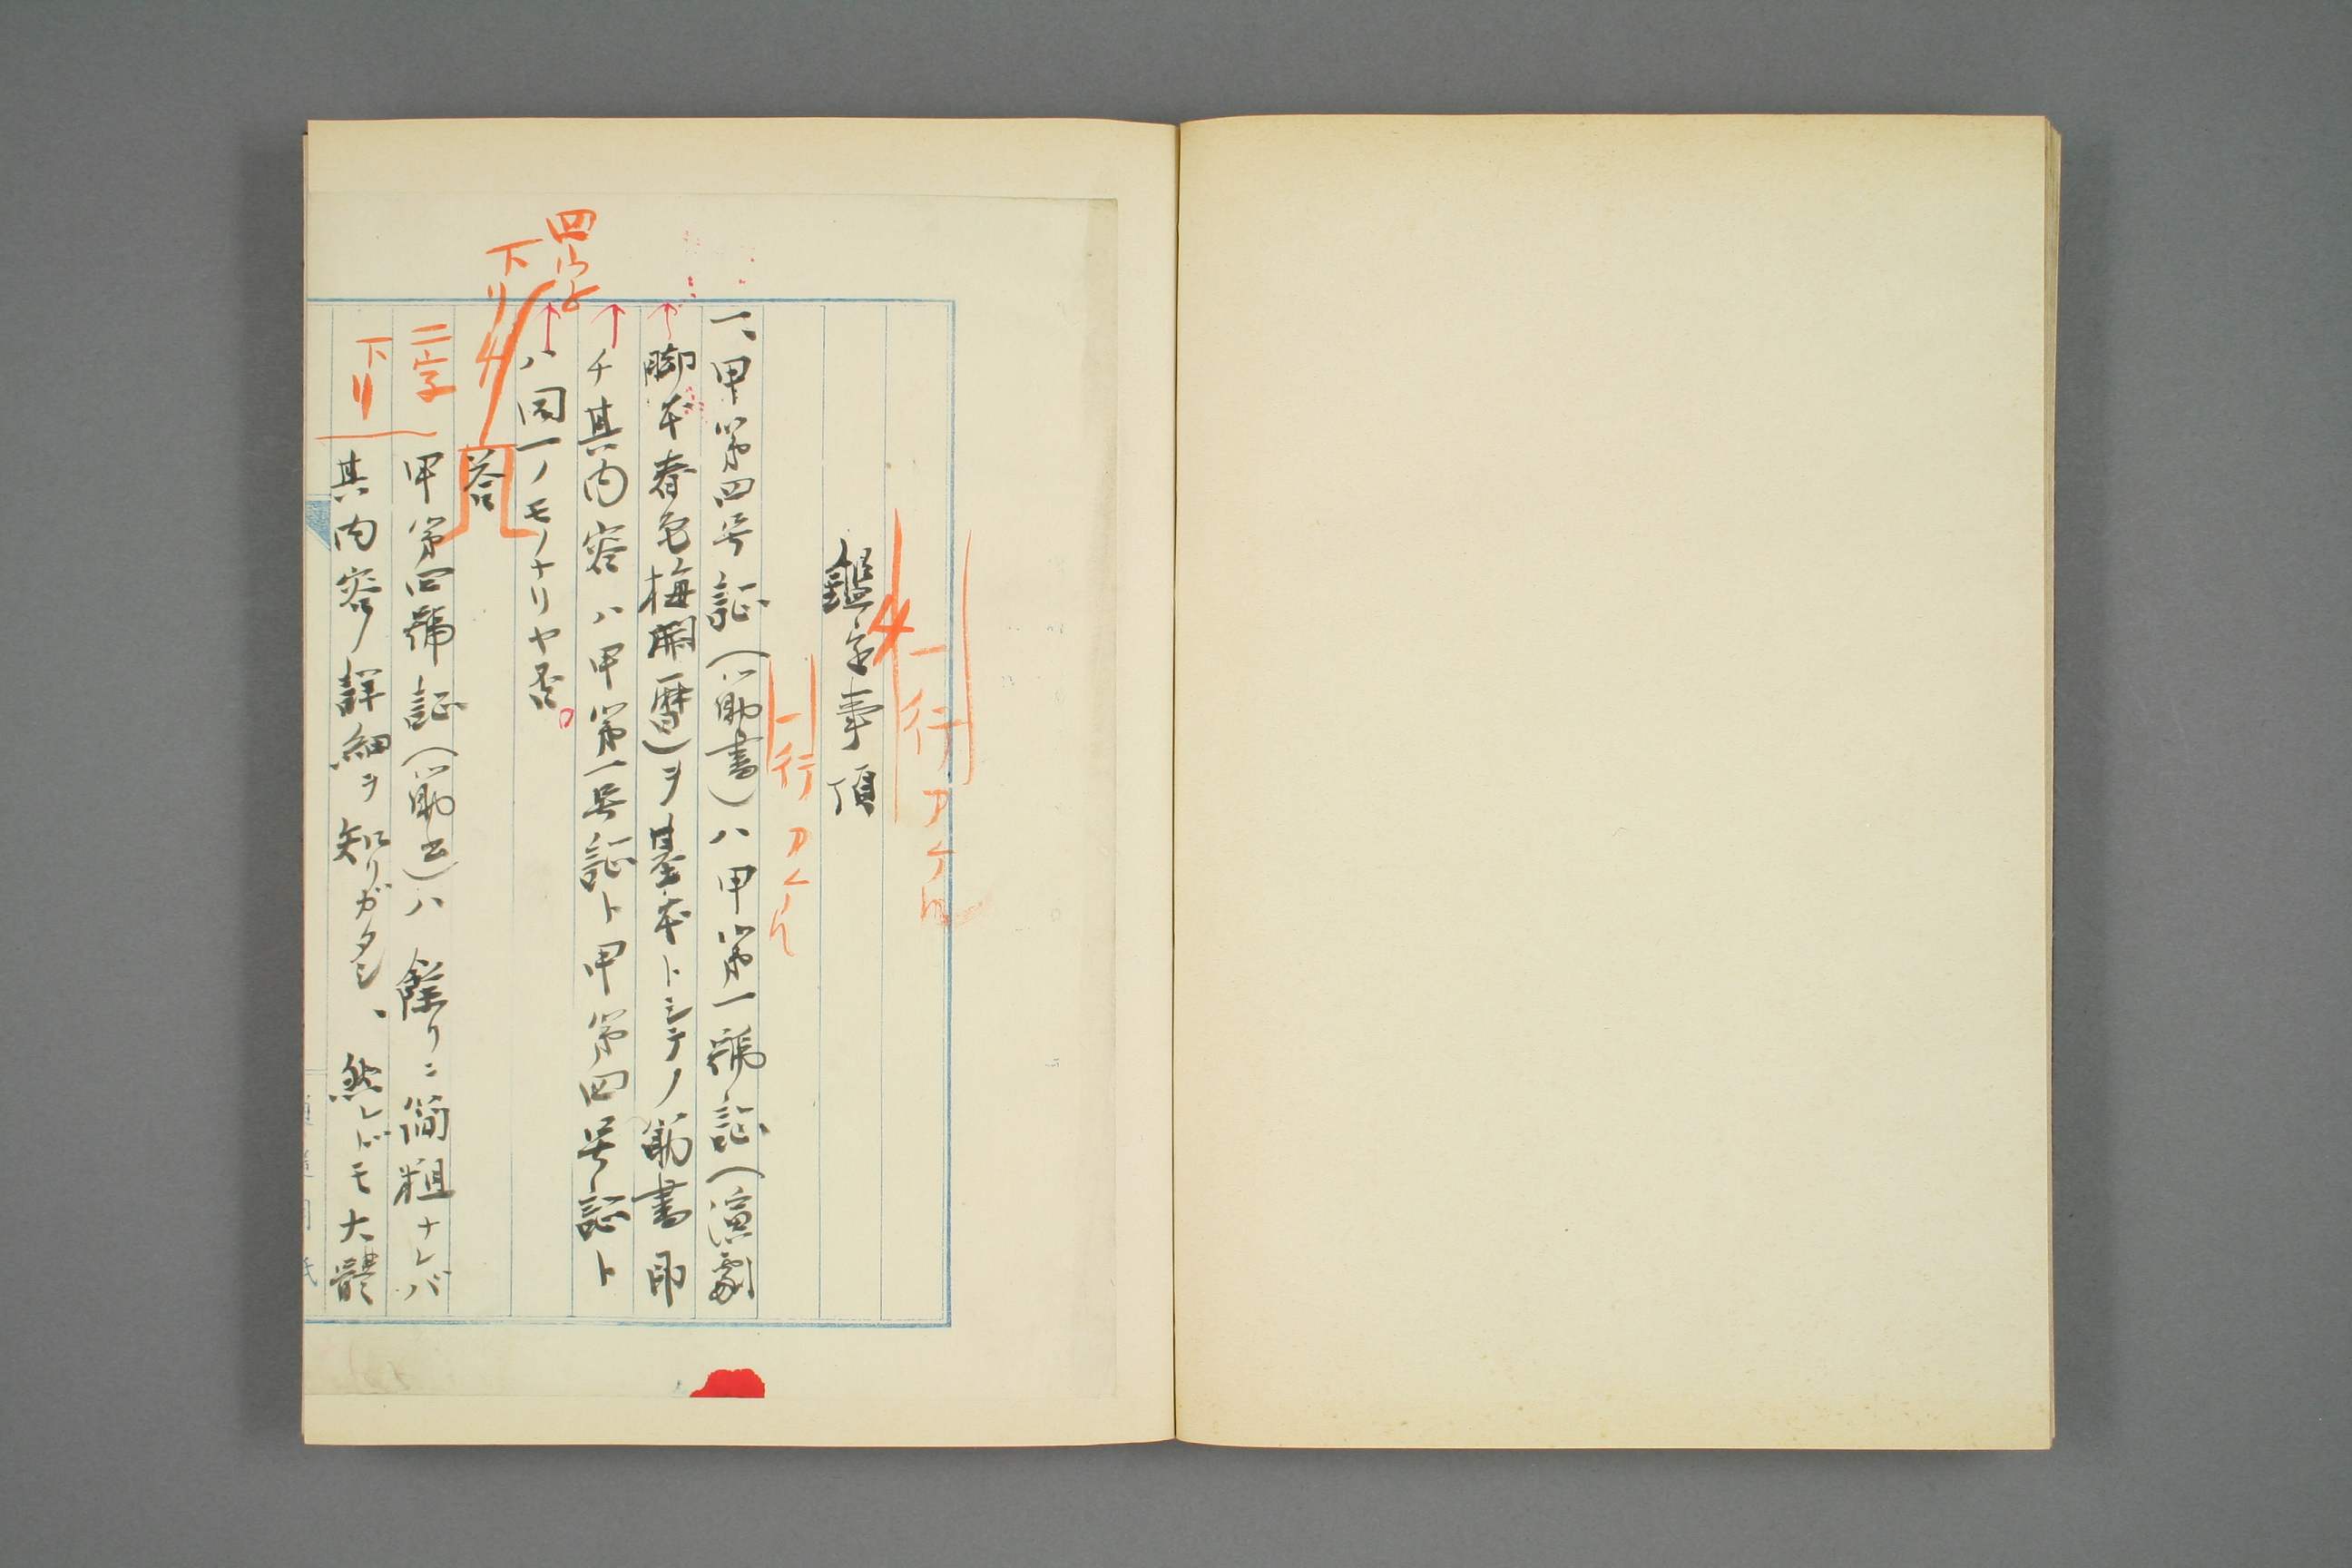 一行アケル
4
鑑定事項
一行アケル
一、甲第四号証(筋書)ハ甲第一號証(演劇
脚本春色梅暦)ヲ基本トシテノ筋書即
チ其内容ハ甲第一号証ト甲第四号証ト
ハ同一ノモノナリヤ否。
四字
下リ
4
答
二字
下リ
甲第四號証(筋書)ハ餘リニ簡粗ナレバ
其内容ノ詳細ヲ知リガタシ、然レドモ大體